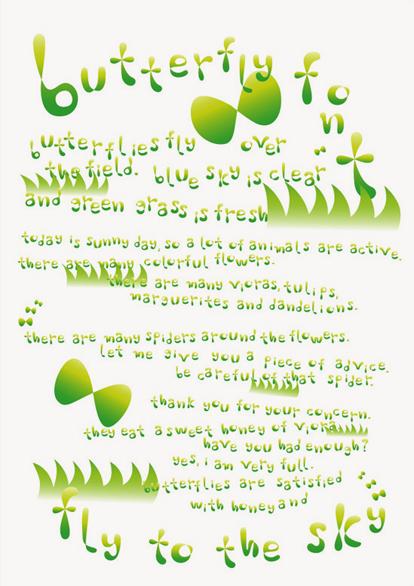 butterfly font
butterflies fly over
the field. blue sky is clear
and green grass is fresh
today is sunny day, so a lot of animals are active.
there are many colorful flowers.
there are many vioras, tulips,
marguerites and dandelions.
there are many spiders around the flowers.
let me give you a piece of advice.
be careful of that spider.
thank you for your concern.
they eat a sweet honey of viora
have you had enough?
yes, i am very full.
butterflies are satisfied
with honey and
fly to the sky